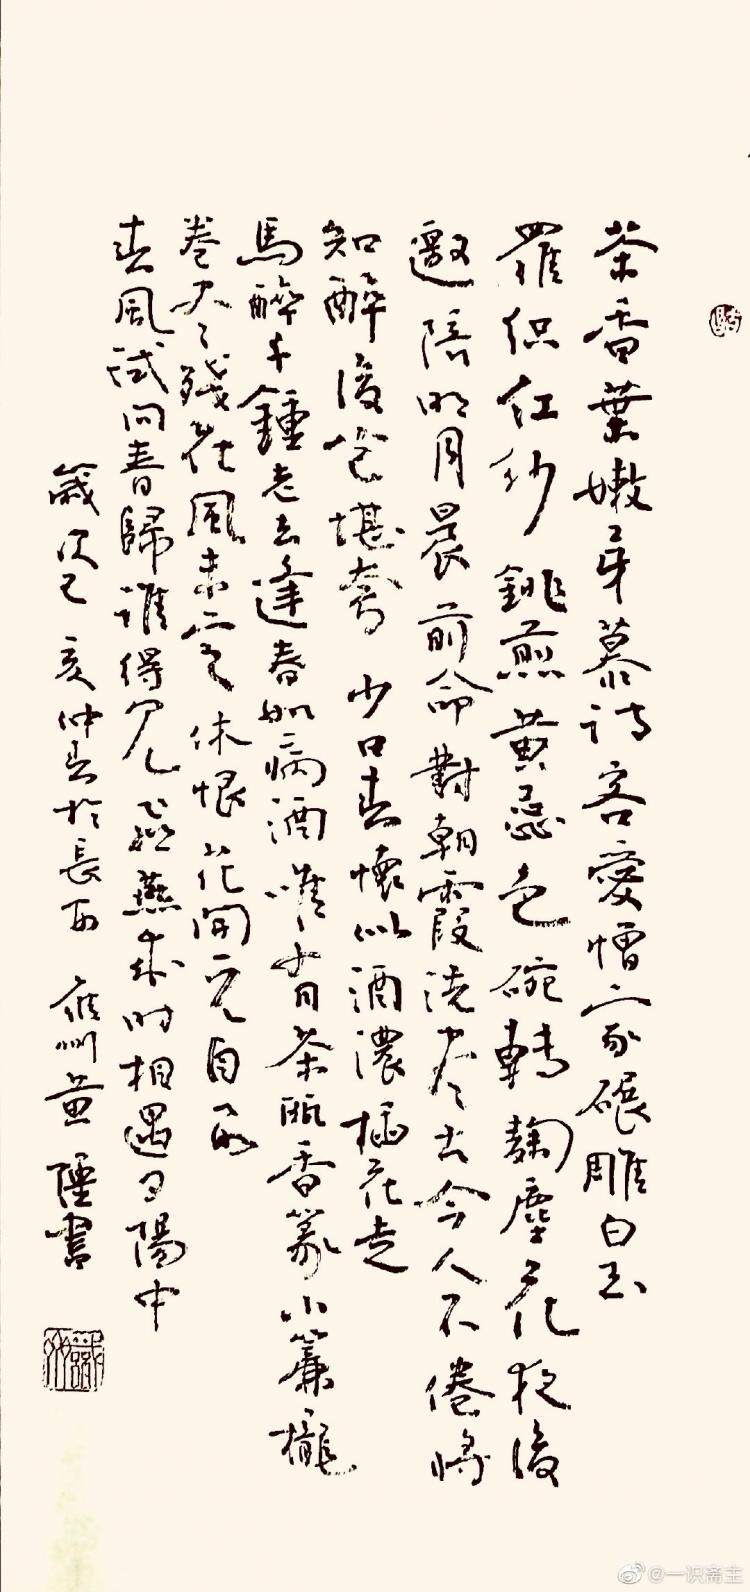 茶香葉嫩芽慕詩客愛僧家碾雕白玉
羅织红紗銚煎黄蕊色碗轉麴塵花夜後
邀陪明月晨前命對朝霞洗盡古今人不倦將
知醉後豈堪夸少日春懷似酒濃插花走
馬醉千鍾老去逢春如病酒唯有茶甌香篆小簾櫳
卷盡殘花風未定休恨花開元自要
春風試問春歸誰得見飛燕來時相遇夕陽中
歲次己亥仲春於長安州黄書
@一识斋主